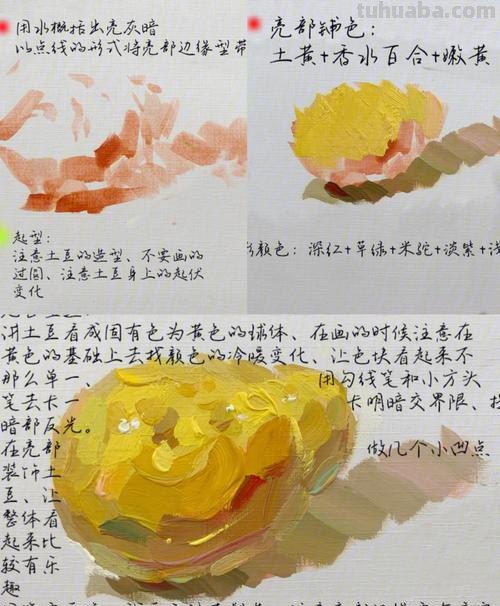 tuhuaba.com
用水概括出亮灰暗
以点线的形式将亮部边缘型带
亮部铺色：
土黄+香水百合+嫩黄
起型：
注意土豆的造型、不要画的
过圆、注意土豆身上的起伏
变化
颜色：深红+草绿+米驼+淡紫+浅
讲土豆看成固有色为黄色的球体、在画的时候注意在
黄色的基础上去找颜色的冷暖变化、让色块看起来不
那么单一、 用勾线笔和小方头
笔去卡一 卡明暗交界限、找
暗部反光。
在亮部 做几个小凹点
装饰土
豆、让
整体看
起来比
较有乐
趣